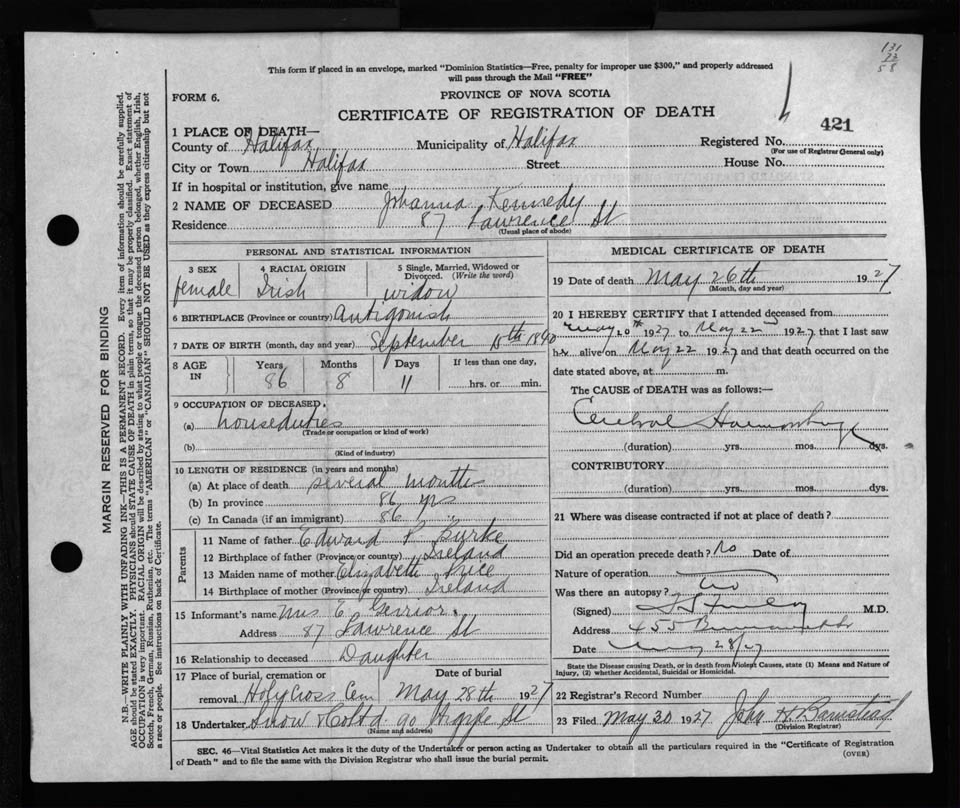 131
23
58
This form if placed in an envelope, marked "Dominion Statistics—Free, penalty for improper use $300," and properly addressed
will pass through the Mail "FREE"
FORM 6.
PROVINCE OF NOVA SCOTIA
CERTIFICATE OF REGISTRATION OF DEATH
421
1 PLACE OF DEATH—
County of Halifax Municipality of Halifax Registered No.
(For use of Registrar General only)
City or Town Halifax Street House No.
If in hospital or institution, give name
2 NAME OF DECEASED Johanna Kennedy
Residence 87 Lawrence St
(Usual place of abode)
PERSONAL AND STATISTICAL INFORMATION
3 SEX 4 RACIAL ORIGIN 5 Single, Married, Widowed or
Divorced. (Write the word)
female Irish widow
6 BIRTHPLACE (Province or country) Antigonish
7 DATE OF BIRTH (month, day and year) September 1840
8 AGE IN Years Months Days If less than one day,
86 8 11 hrs. or min.
9 OCCUPATION OF DECEASED.
(a) houseduties
(Trade or occupation or kind of work)
(b)
(Kind of industry)
10 LENGTH OF RESIDENCE (in years and months)
(a) At place of death several months
(b) In province 86 yrs
(c) In Canada (if an immigrant) 86 "
Parents
11 Name of father Edward P. Burke
12 Birthplace of father (Province or country) Ireland
13 Maiden name of mother Elizabeth Price
14 Birthplace of mother (Province or country) Ireland
15 Informant's name Mrs E. Gerrior.
Address 87 Lawrence St
16 Relationship to deceased Daughter
17 Place of burial, cremation or Date of burial
removal Holy Cross Cem May 28th 1927
18 Undertaker Snow & Co Ltd 90 Argyle St
(Name and address)
MEDICAL CERTIFICATE OF DEATH
19 Date of death May 26th 1927
(Month, day and year)
20 I HEREBY CERTIFY that I attended deceased from
May 20th 1927 to May 22nd 1927, that I last saw
her alive on May 22 1927 and that death occurred on the
date stated above, at m.
The CAUSE OF DEATH was as follows:—
Cerebral Haemorrhage
(duration) yrs. mos. dys.
CONTRIBUTORY
(duration) yrs. mos. dys.
21 Where was disease contracted if not at place of death?
Did an operation precede death? No Date of
Nature of operation
Was there an autopsy? no
(Signed) M.D.
Address 455
Date May 28/27
State the Disease causing Death, or in death from Violent Causes, state (1) Means and Nature of
Injury, (2) whether Accidental, Suicidal or Homicidal.
22 Registrar's Record Number
23 Filed May 30 1927 John H. Barnstead
(Division Registrar)
SEC. 46—Vital Statistics Act makes it the duty of the Undertaker or person acting as Undertaker to obtain all the particulars required in the "Certificate of Registration
of Death" and to file the same with the Division Registrar who shall issue the burial permit.
(OVER)
MARGIN RESERVED FOR BINDING
N.B.—WRITE PLAINLY WITH UNFADING INK—THIS IS A PERMANENT RECORD. Every item of information should be carefully supplied.
AGE should be stated EXACTLY. PHYSICIANS should STATE CAUSE OF DEATH in plain terms, so that it may be properly classified. Exact statement of
OCCUPATION is very important. RACIAL ORIGIN will be described by stating to what people or tongue the deceased person belonged, whether English, Irish,
Scotch, French, German, Russian, Ruthenian, etc. The terms "AMERICAN" or "CANADIAN" SHOULD NOT BE USED as they express citizenship but not
a race or people. See instructions on back of Certificate.